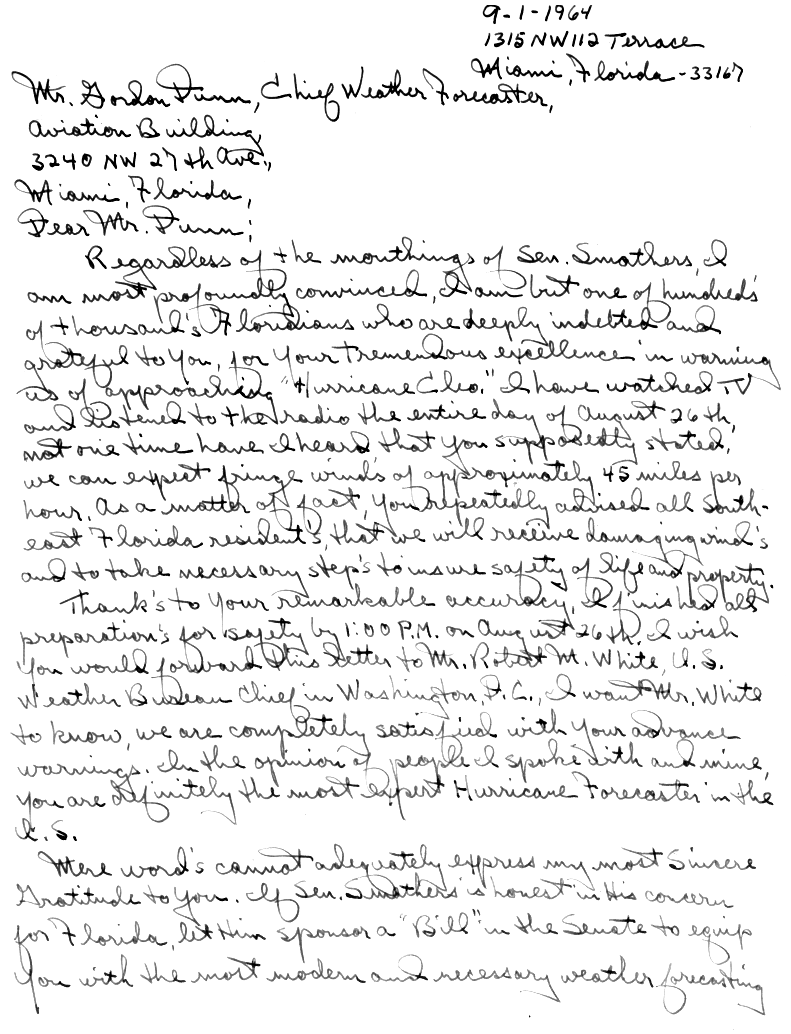 9-1-1964
1315 NW 112 Terrace
Miami, Florida - 33167
Mr. Gordon Dunn, Chief Weather Forecaster,
Aviation Building,
3240 NW 27th Ave.,
Miami, Florida,
Dear Mr. Dunn;
Regardless of the mouthings of Sen. Smathers, I
am most profoundly convinced, I am but one of hundred's
of thousand's Floridians who are deeply indebted and
grateful to You, for Your tremendous excellence in warning
us of approaching "Hurricane Cleo." I have watched TV
and listened to the radio the entire day of August 26th,
not one time have I heard that you supposedly stated,
we can expect fringe wind's of approximately 45 miles per
hour. As a matter of fact, You repeatedly advised all South-
east Florida resident's, that we will receive damaging wind's
and to take necessary step's to insure safety of life and property.
Thank's to Your remarkable accuracy, I finished all
preparation's for safety by 1:00 P.M. on August 26th. I wish
You would forward this letter to Mr. Robert M. White, U.S.
Weather Bureau Chief in Washington, D.C., I want Mr. White
to know, we are completely satisfied with Your advance
warnings. In the opinion of people I spoke with and mine,
You are definitely the most expert Hurricane Forecaster in the
U.S.
Mere word's cannot adequately express my most Sincere
Gratitude to You. If Sen. Smathers is honest in His concern
for Florida, let Him sponsor a "Bill" in the Senate to equip
You with the most modern and necessary weather forecasting